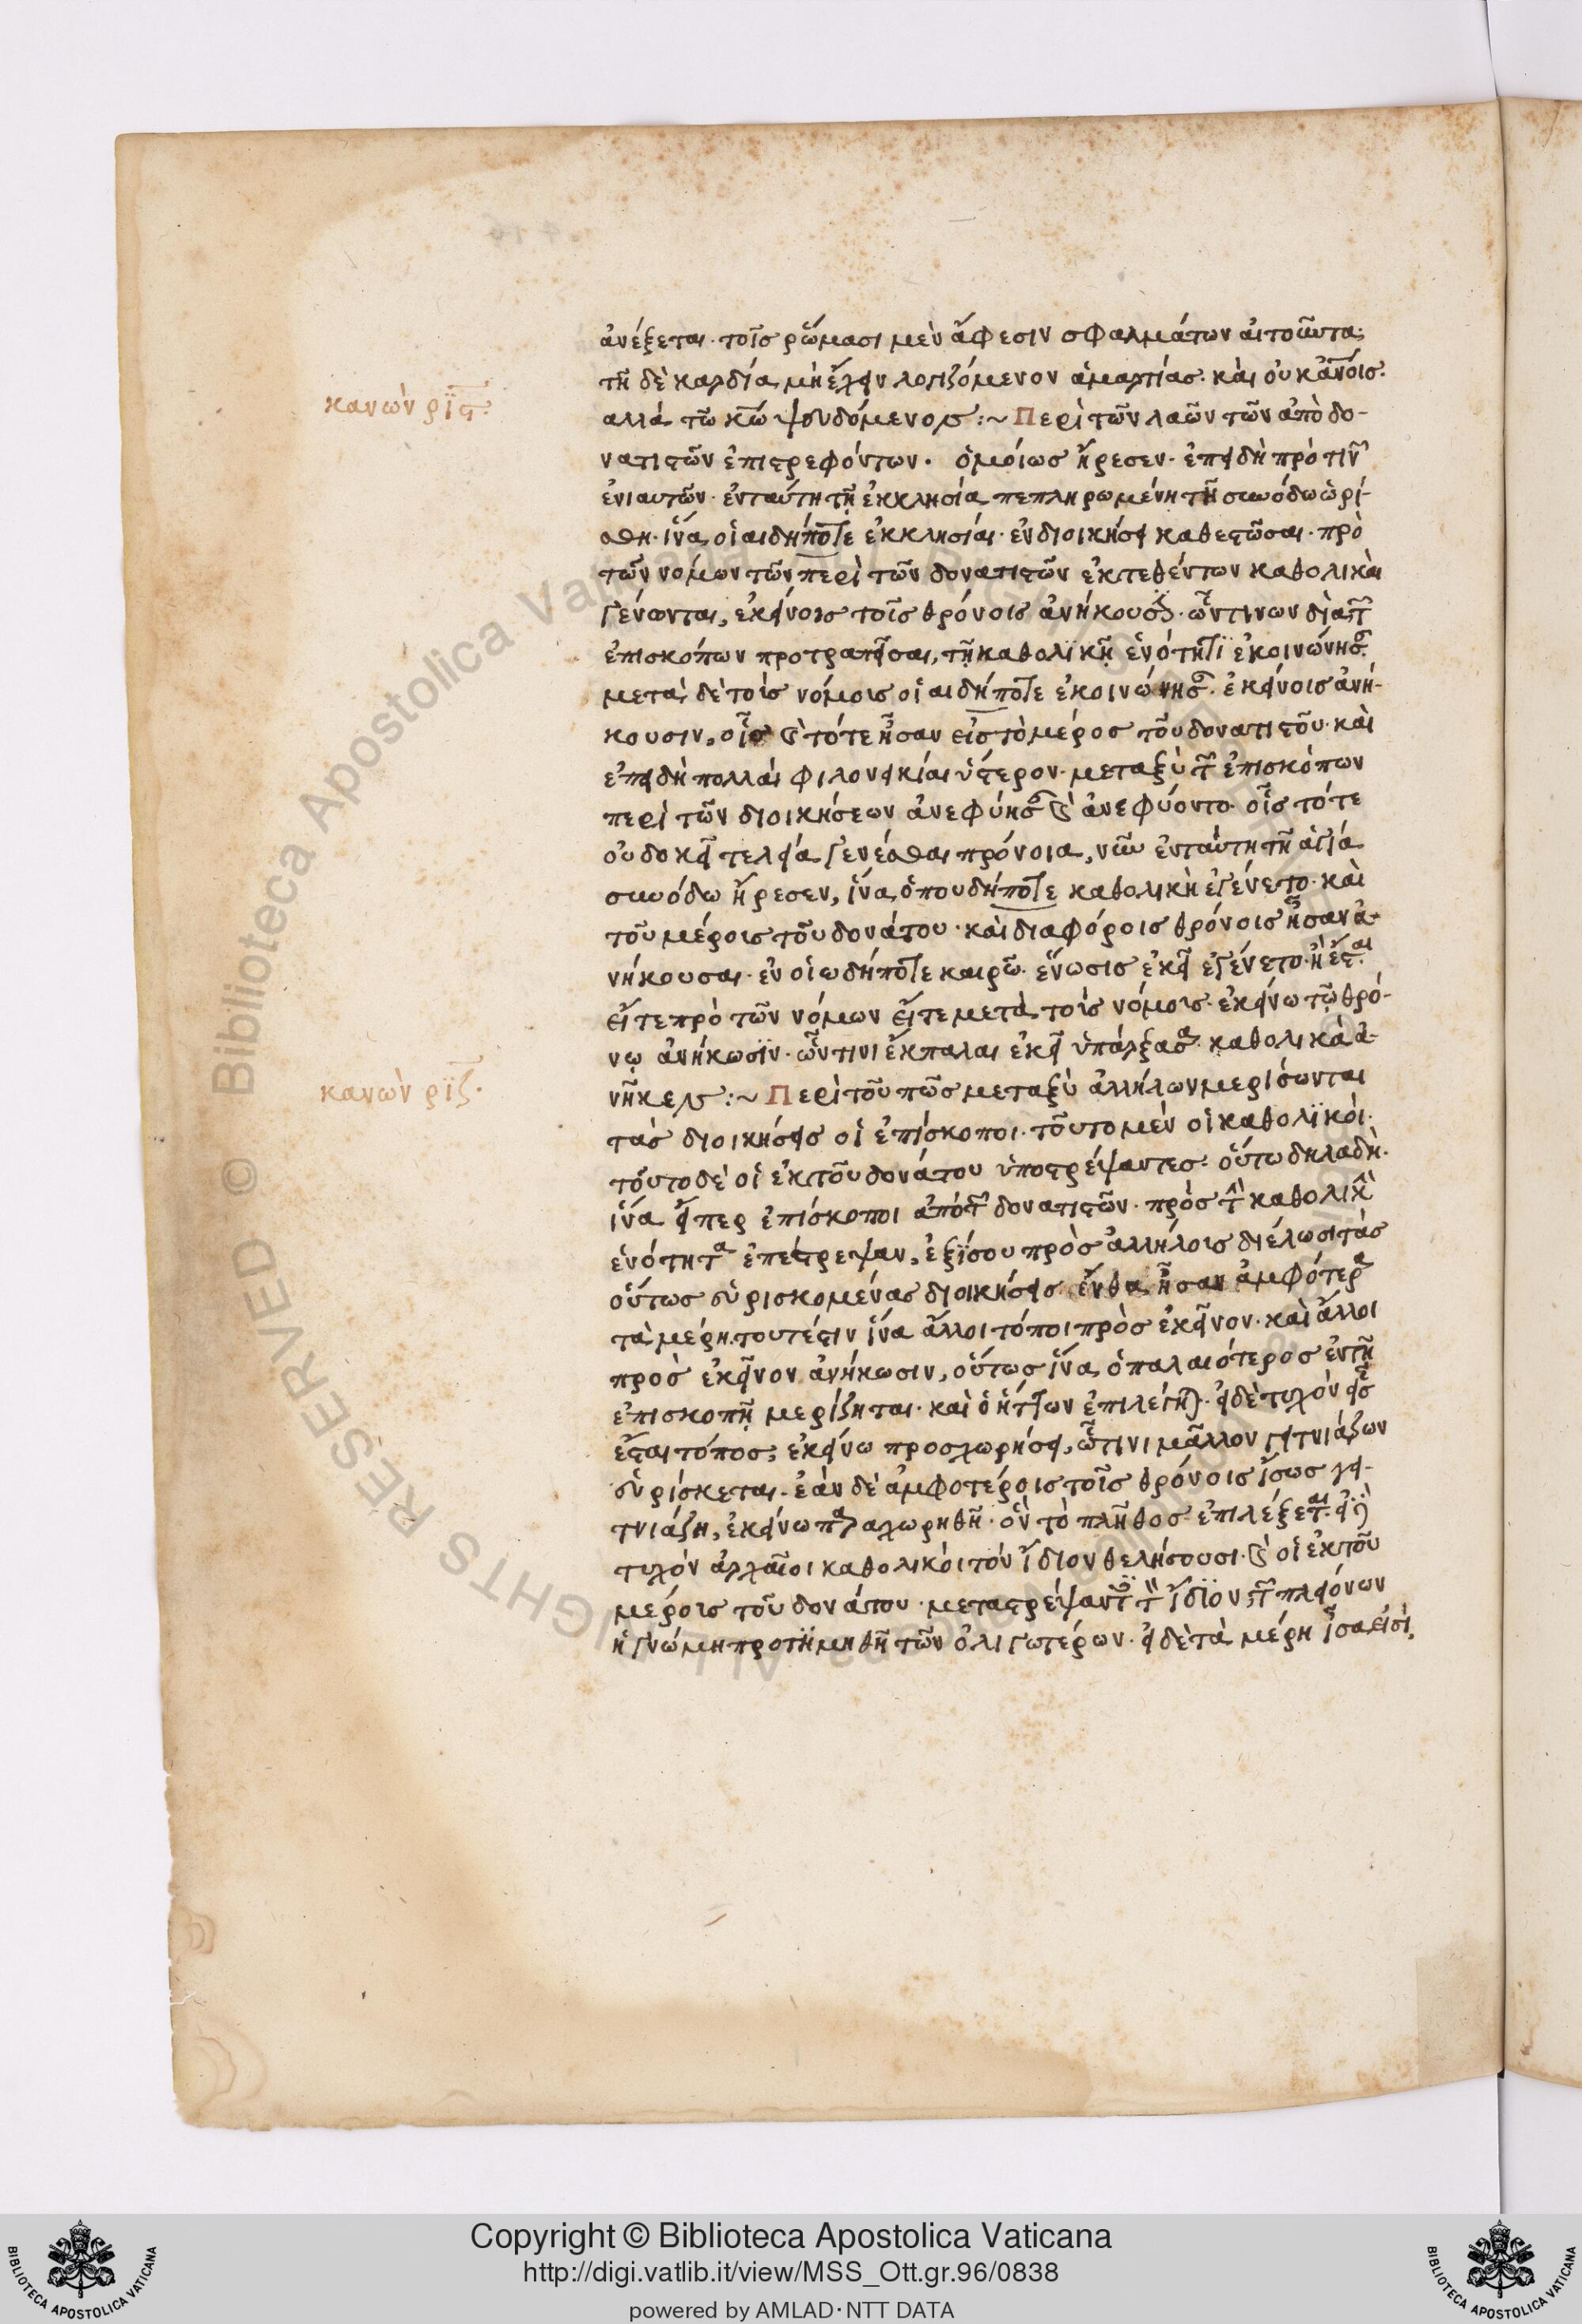 ἀνέξεται· τοῖς ρήμασι μὲν ἄφεσιν σφαλμάτων αἰτοῦντα·
τῆ δὲ καρδία μὴ ἔχειν λογιζόμενον ἁμαρτίας· καὶ οὐκ ἀν̅οις·
κανὼν ρις·
αλλὰ τῶ κ̅ω ψευδόμενος :~ Περὶ τῶν λαῶν τῶν ἀπὸ δο-
νατιστῶν ἐπιστρεφόντων· ὁμοίως ἤρεσεν· ἐπειδὴ πρὸ τινῶν
ἐνιαυτῶν· ἐν ταύτη τῆ ἐκκλησία πεπληρωμένη τῆ συνόδω ὡρί-
σθη· ἵνα οἱαιδήποτε ἐκκλησίαι· ἐν διοικήσει καθεστῶσαι· πρὸ
τῶν νόμων τῶν περὶ τῶν δονατιστῶν ἐκτεθέντων καθολικαὶ
γένωνται, ἐκείνοις τοῖς θρόνοις ἀνήκουσαι· ὧντινων διὰ τῶν
ἐπισκόπων προτραπεῖσαι, τῆ καθολικῆ ἑνότητι ἐκοινώνησαν·
μετὰ δὲ τοὺς νόμους οἱαιδήποτε ἐκοινώνησαν· ἐκείνοις ἀνή-
κουσιν, οἷς καὶ τότε ἦσαν εἰς τὸ μέρος τοῦ δονατιστοῦ· καὶ
ἐπειδὴ πολλαὶ φιλονεικίαι ὕστερον· μεταξὺ τῶν ἐπισκόπων
περὶ τῶν διοικήσεων ἀνεφύησαν καὶ ἀνεφύοντο· οἷς τότε
οὐ δοκεῖ τελεία γενέσθαι πρόνοια, νῦν ἐν ταύτη τῆ ἁγία
συνόδω ἤρεσεν, ἵνα ὁπουδήποτε καθολικὴ ἐγένετο· καὶ
τοῦ μέρους τοῦ δονάτου· καὶ διαφόροις θρόνοις ἦσαν ἀ-
νήκουσαι· ἐν οἱωδήποτε καιρῶ· ἕνωσις ἐκεῖ ἐγένετο· ἢ ἔσται·
εἴτε πρὸ τῶν νόμων εἴτε μετὰ τοὺς νόμους· ἐκείνω τῶ θρό-
νῳ ἀνήκωσϊν· ὧντινι ἔκπαλαι ἐκεῖ ὑπάρξασα· καθολικὰ ἀ-
κανὼν ριζ·
νῆκεν :~ Περὶ τοῦ πῶς μεταξὺ ἀλλήλων μερίσωνται
τὰς διοικήσεις οἱ ἐπίσκοποι· τοῦτο μὲν οἱ καθολϊκοί·
τοῦτο δὲ οἱ ἐκ τοῦ δονάτου ὑποστρέψαντες· οὕτω δηλαδή·
ἵνα εἴπερ ἐπίσκοποι ἀπὸ τῶν δονατιστῶν· πρὸς τὴν καθολικὴν
ἑνότητα ἐπέστρεψαν, ἐξίσου πρὸς ἀλλήλους διέλωσι τὰς
οὕτως εὑρισκομένας διοικήσεις ἔνθα ἦσαν ἀμφότερα
τὰ μέρη· τουτέστιν ἵνα ἄλλοι τόποι πρὸς ἐκεῖνον· καὶ ἄλλοι
πρὸς ἐκεῖνον ἀνήκωσιν, οὕτως ἵνα ὁ παλαιότερος ἐν τῆ
ἐπισκοπῆ μερίζηται· καὶ ὁ ἥττων ἐπιλέγηται· εἰ δὲ τυχὸν εἷς
ἔσται τόπος, ἐκείνω προσχωρήσει, ὧτινι μᾶλλον γειτνιάζων
εὑρίσκεται· ἐὰν δὲ ἀμφοτέροις τοῖς θρόνοις ἴσως γει-
τνιάζη, ἐκείνω παραχωρηθῆ· ὃν τὸ πλῆθος ἐπιλέξεται· εἰ δὲ
τυχὸν ἀρχαῖοι καθολικοὶ τὸν ἴδιον θελήσουσι· καὶ οἱ ἐκ τοῦ
μέρους τοῦ δονάτου· μεταστρέψαντες τὸν ἴδϊον, τῶν πλειόνων
ἡ γνώμη προτϊμηθῆ τῶν ὀλιγωτέρων· εἰ δὲ τὰ μέρη ἴσα εἰσὶ,
Copyright © Biblioteca Apostolica Vaticana
http://digi.vatlib.it/view/MSS_Ott.gr.96/0838
powered by AMLAD·NTT DATA
BIBLIOTECA APOSTOLICA VATICANA
BIBLIOTECA APOSTOLICA VATICANA